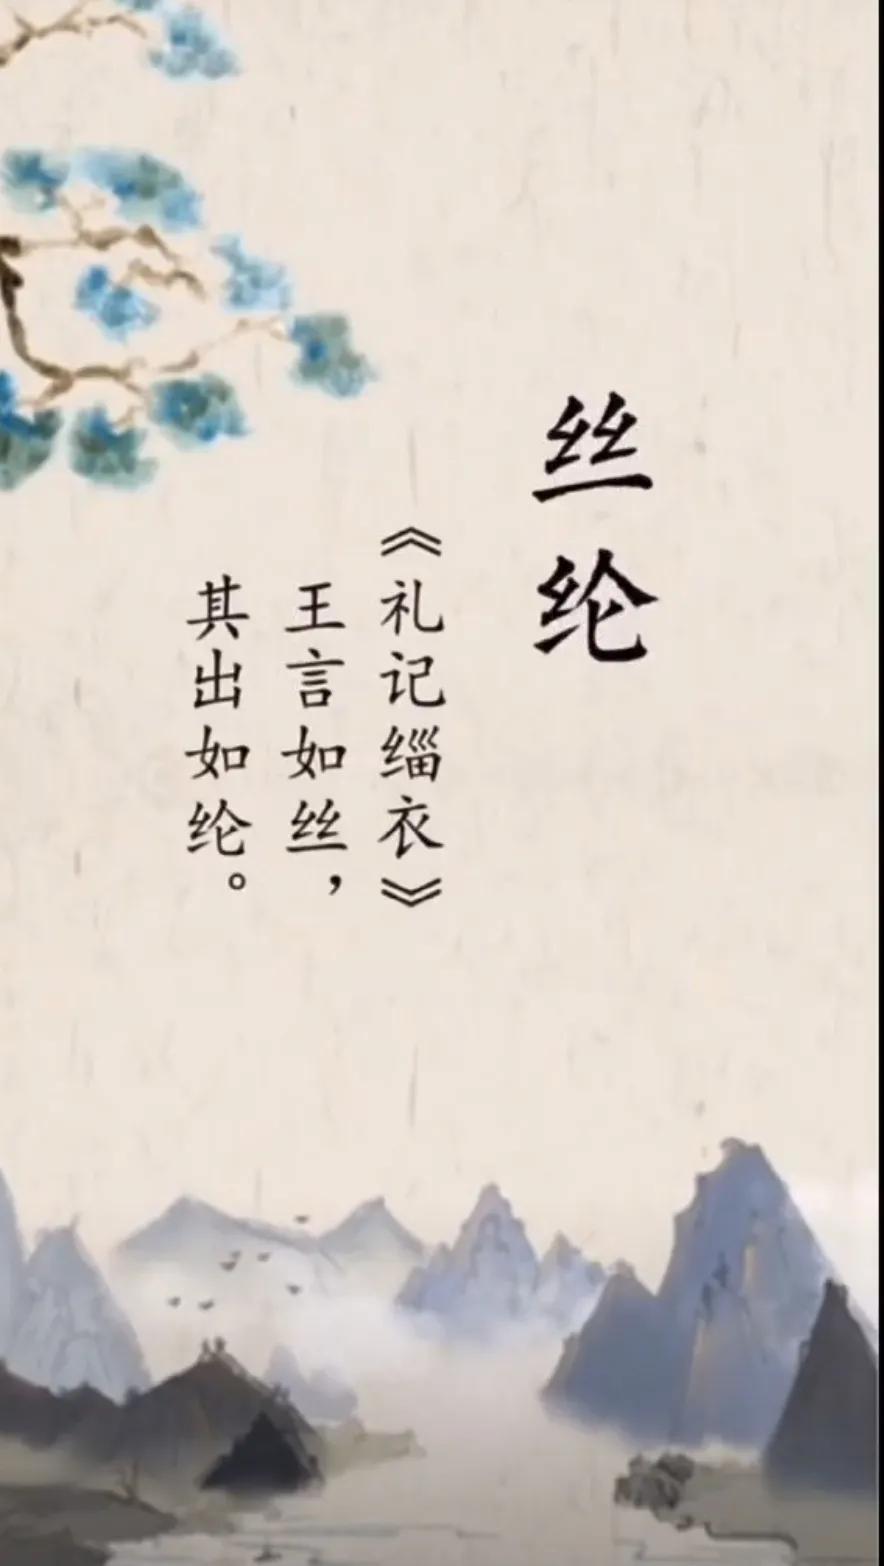 丝纶
《礼记缁衣》
王言如丝，
其出如纶。